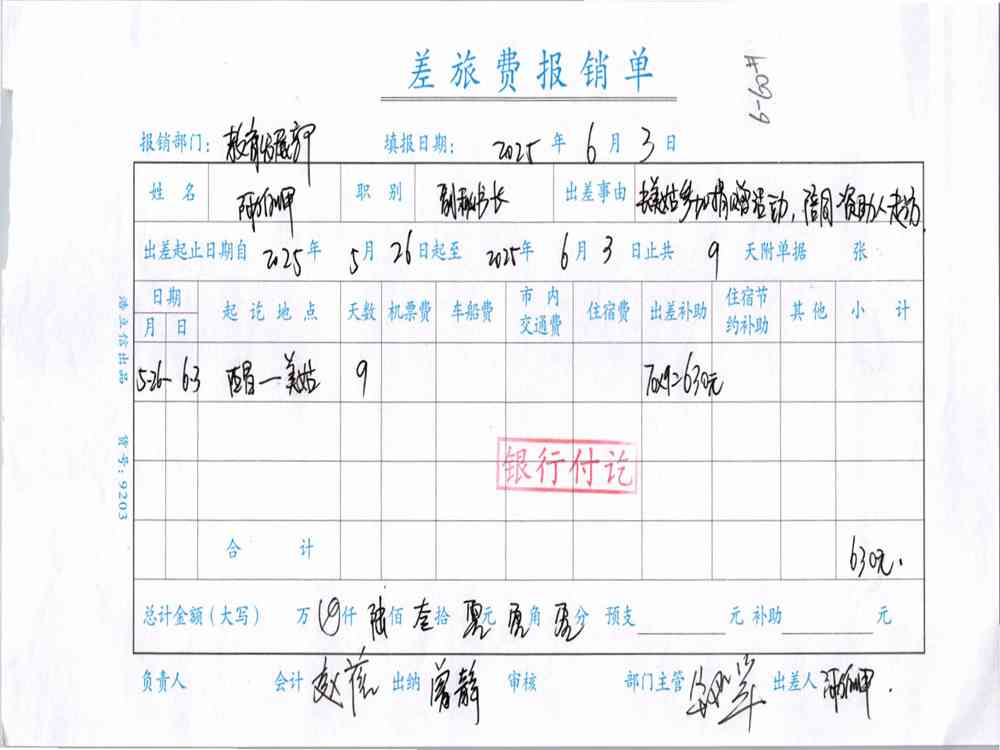 差旅费报销单
6-60#
报销部门: 教育发展部 填报日期: 2025 年 6 月 3 日
姓名 职别 副秘书长 出差事由 去美姑参加捐赠活动,陪同资助人走访.
出差起止日期自 2025 年 5 月 26 日起至 2025 年 6 月 3 日止共 9 天附单据 张
日期 起讫地点 天数 机票费 车船费 市内交通费 住宿费 出差补助 住宿节约补助 其他 小计
月 日
5.26- 6.3 西昌—美姑 9 70×9=630元
银行付讫
合计 630元.
总计金额(大写) 万 仟 陆 佰 叁 拾 零 元 零 角 零 分 预支 元 补助 元
负责人 会计 赵 出纳 曾静 审核 部门主管 出差人
浩立信出品 货号:9203